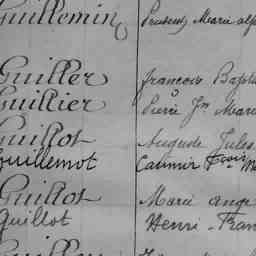 Guillemin Prudent Marie
Guiller francois Bapti
Guillier Pierre Jn Marie
Guillot Auguste Jules
Guillemot Casimir Frois
Guillot Marie ange
Guillot Henri - Fran